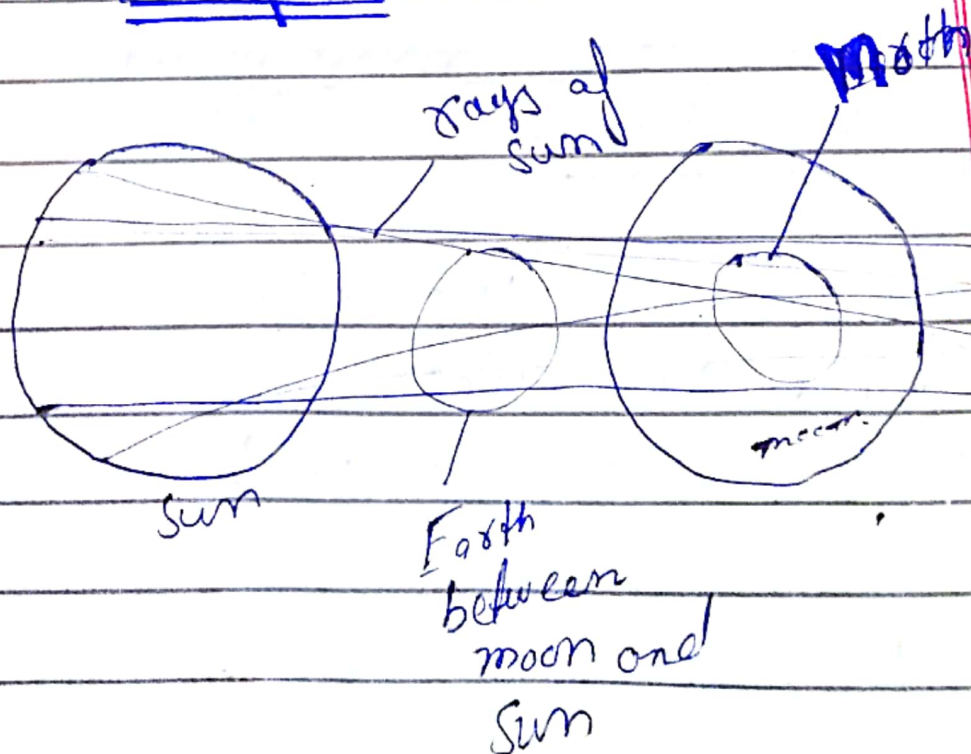 rays of
sun
moon
sun
Earth
between
moon and
sun